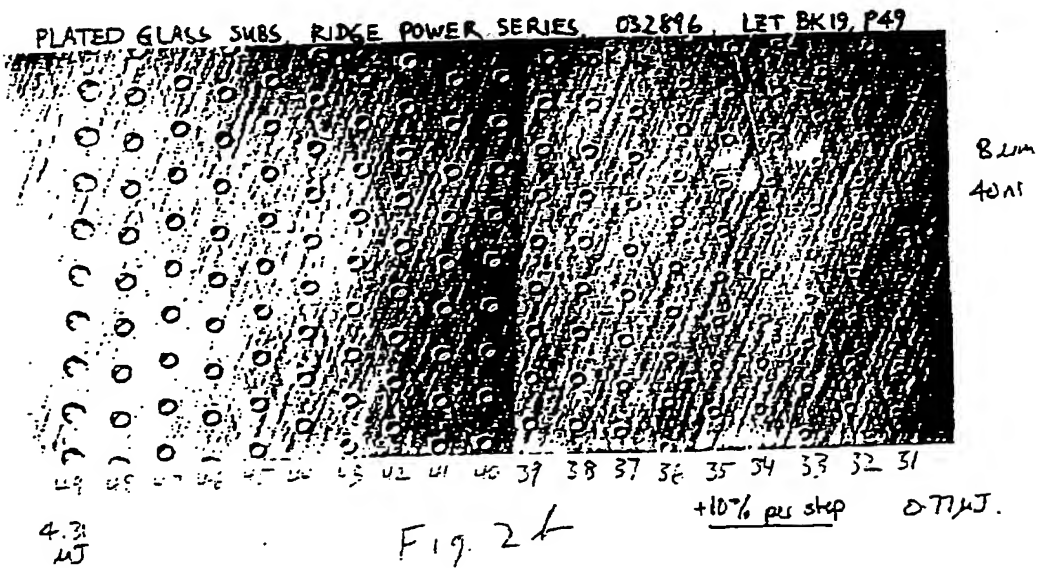 PLATED GLASS SUBS, RIDGE POWER SERIES, 032896, LET BK19, P49
8 µm
40 ns
49 48 47 46 45 44 43 42 41 40 39 38 37 36 35 34 33 32 31
+10% per step 0.77 µJ.
4.31
µJ
Fig. 2b